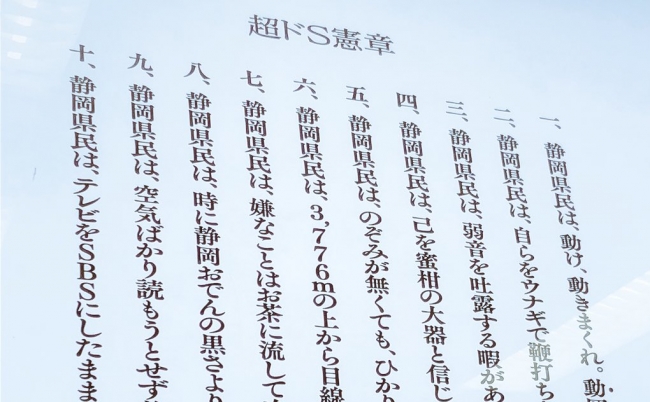 超ドS憲章
一、静岡県民は、動け、動きまくれ。動
二、静岡県民は、自らをウナギで鞭打ち
三、静岡県民は、弱音を吐露する暇があ
四、静岡県民は、己を蜜柑の大器と信じ
五、静岡県民は、のぞみが無くても、ひかり
六、静岡県民は、3,776mの上から目線
七、静岡県民は、嫌なことはお茶に流して
八、静岡県民は、時に静岡おでんの黒さより
九、静岡県民は、空気ばかり読もうとせず
十、静岡県民は、テレビをSBSにしたまま